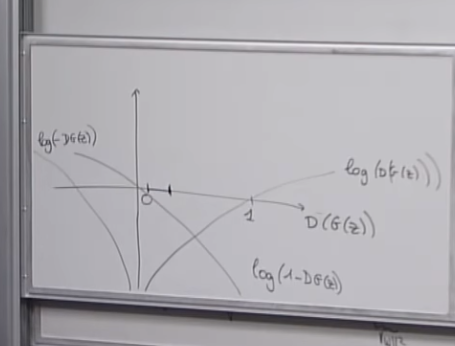 log(-DG(z))
log(D(G(z)))
0
1
D(G(z))
log(1-DG(z))